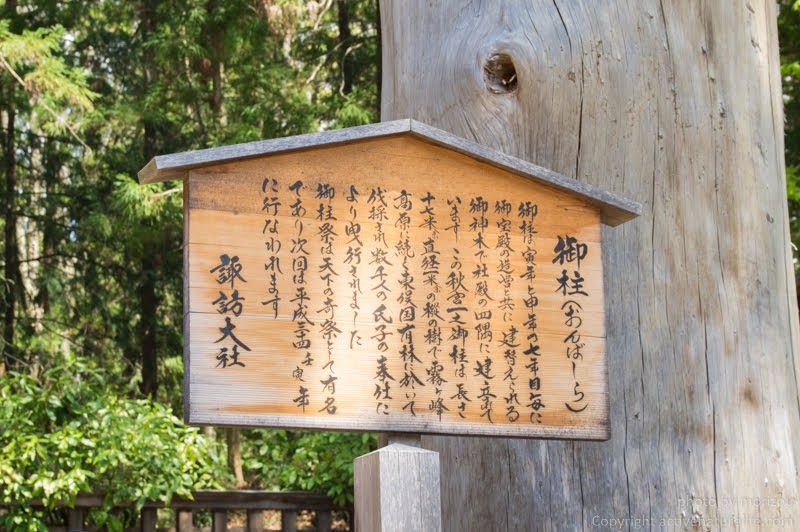 御柱(おんばしら)
御柱は寅年と申年の七年目毎に
御宝殿の造営と共に建替えられる
御神木で社殿の四隅に建立されて
います この秋宮一之御柱は長さ
十七米、直径一米の樅の樹で霧ヶ峰
高原に続く東俣国有林に於いて
伐採され数千人の氏子の奉仕に
より曳行されました
御柱祭は天下の奇祭として有名
であり次回は平成三十四壬寅年
に行なわれます
諏訪大社
photo by
Copyright